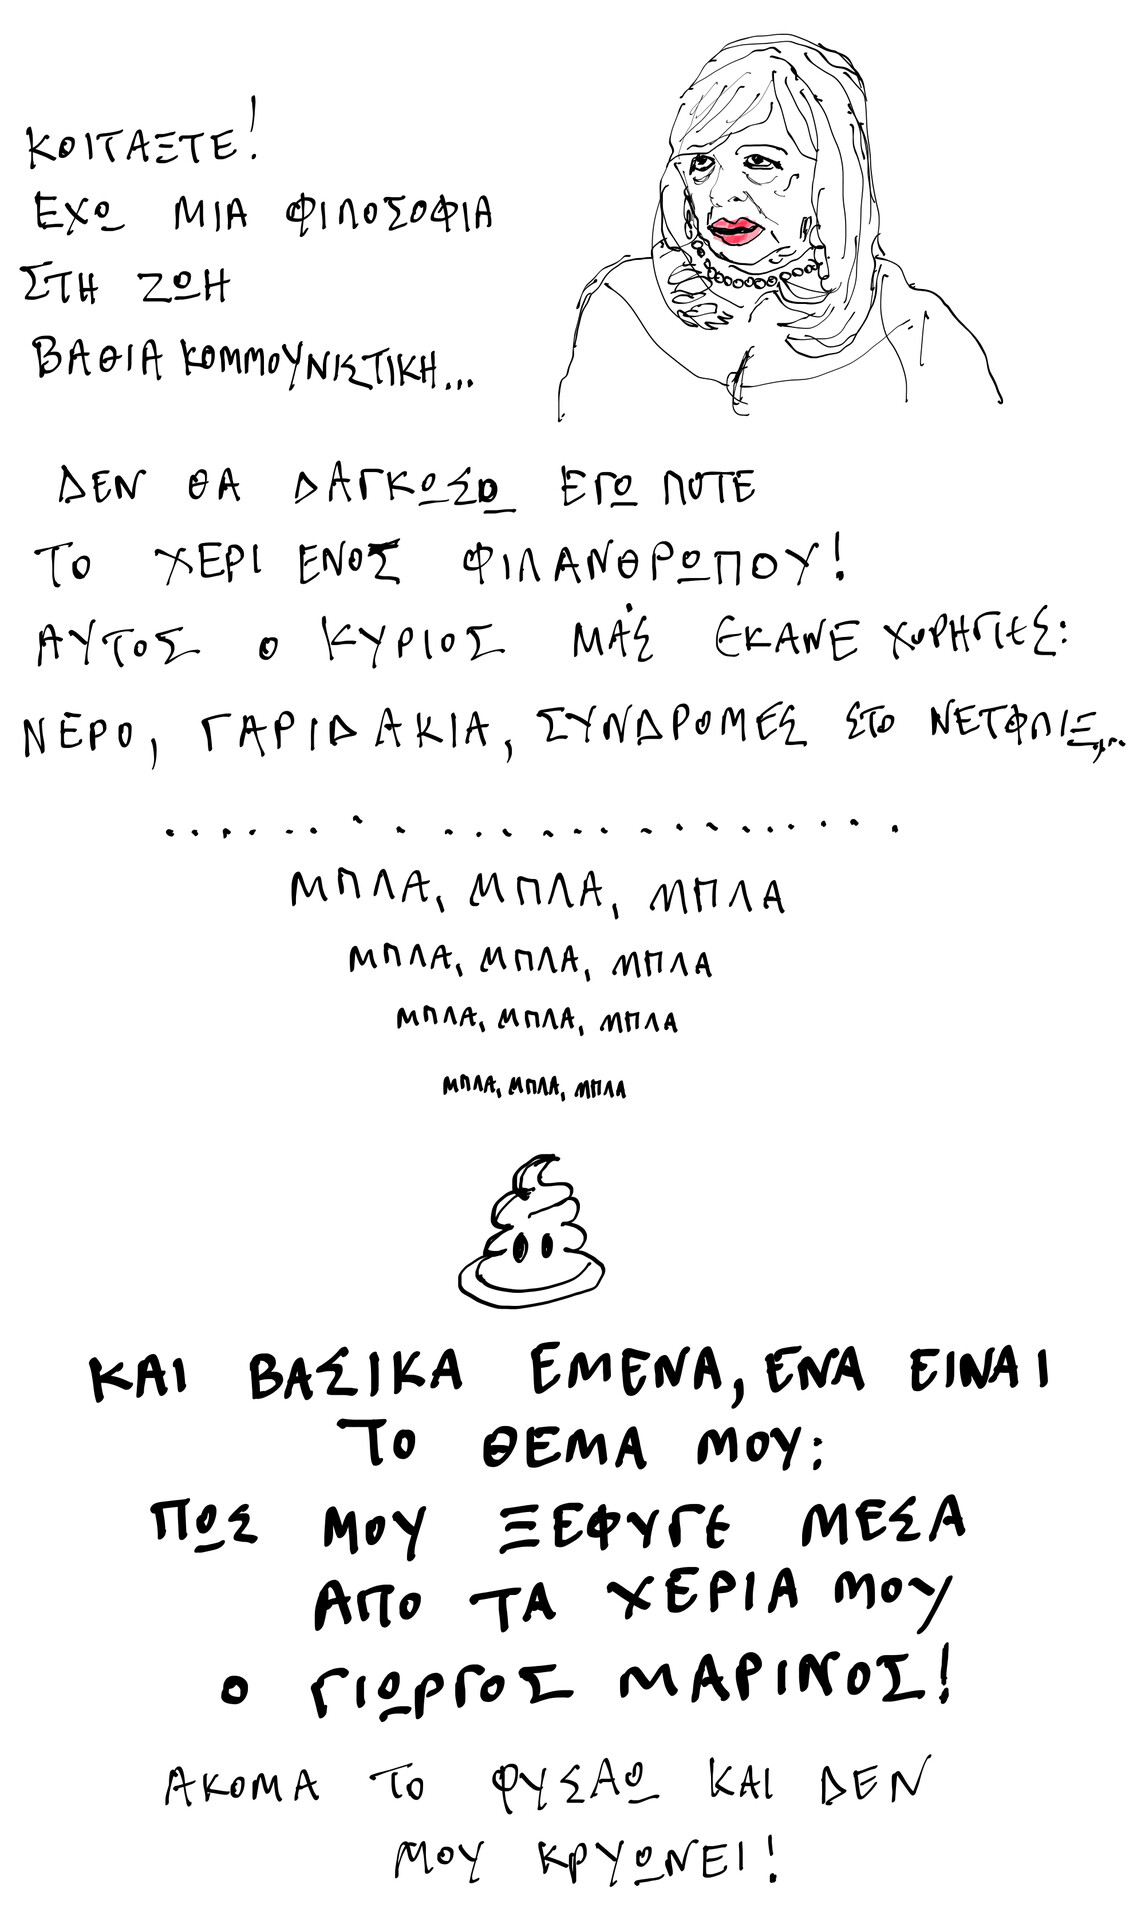 ΚΟΙΤΑΞΤΕ!
ΕΧΩ ΜΙΑ ΦΙΛΟΣΟΦΙΑ
ΣΤΗ ΖΩΗ
ΒΑΘΙΑ ΚΟΜΜΟΥΝΙΣΤΙΚΗ...
ΔΕΝ ΘΑ ΔΑΓΚΩΣΩ ΕΓΩ ΠΟΤΕ
ΤΟ ΧΕΡΙ ΕΝΟΣ ΦΙΛΑΝΘΡΩΠΟΥ!
ΑΥΤΟΣ Ο ΚΥΡΙΟΣ ΜΑΣ ΕΚΑΝΕ ΧΟΡΗΓΙΕΣ:
ΝΕΡΟ, ΓΑΡΙΔΑΚΙΑ, ΣΥΝΔΡΟΜΕΣ ΣΤΟ ΝΕΤΦΛΙΞ,...
..........................
ΜΠΛΑ, ΜΠΛΑ, ΜΠΛΑ
ΜΠΛΑ, ΜΠΛΑ, ΜΠΛΑ
ΜΠΛΑ, ΜΠΛΑ, ΜΠΛΑ
ΜΠΛΑ, ΜΠΛΑ, ΜΠΛΑ
ΚΑΙ ΒΑΣΙΚΑ ΕΜΕΝΑ, ΕΝΑ ΕΙΝΑΙ
ΤΟ ΘΕΜΑ ΜΟΥ:
ΠΩΣ ΜΟΥ ΞΕΦΥΓΕ ΜΕΣΑ
ΑΠΟ ΤΑ ΧΕΡΙΑ ΜΟΥ
Ο ΓΙΩΡΓΟΣ ΜΑΡΙΝΟΣ!
ΑΚΟΜΑ ΤΟ ΦΥΣΑΩ ΚΑΙ ΔΕΝ
ΜΟΥ ΚΡΥΩΝΕΙ!